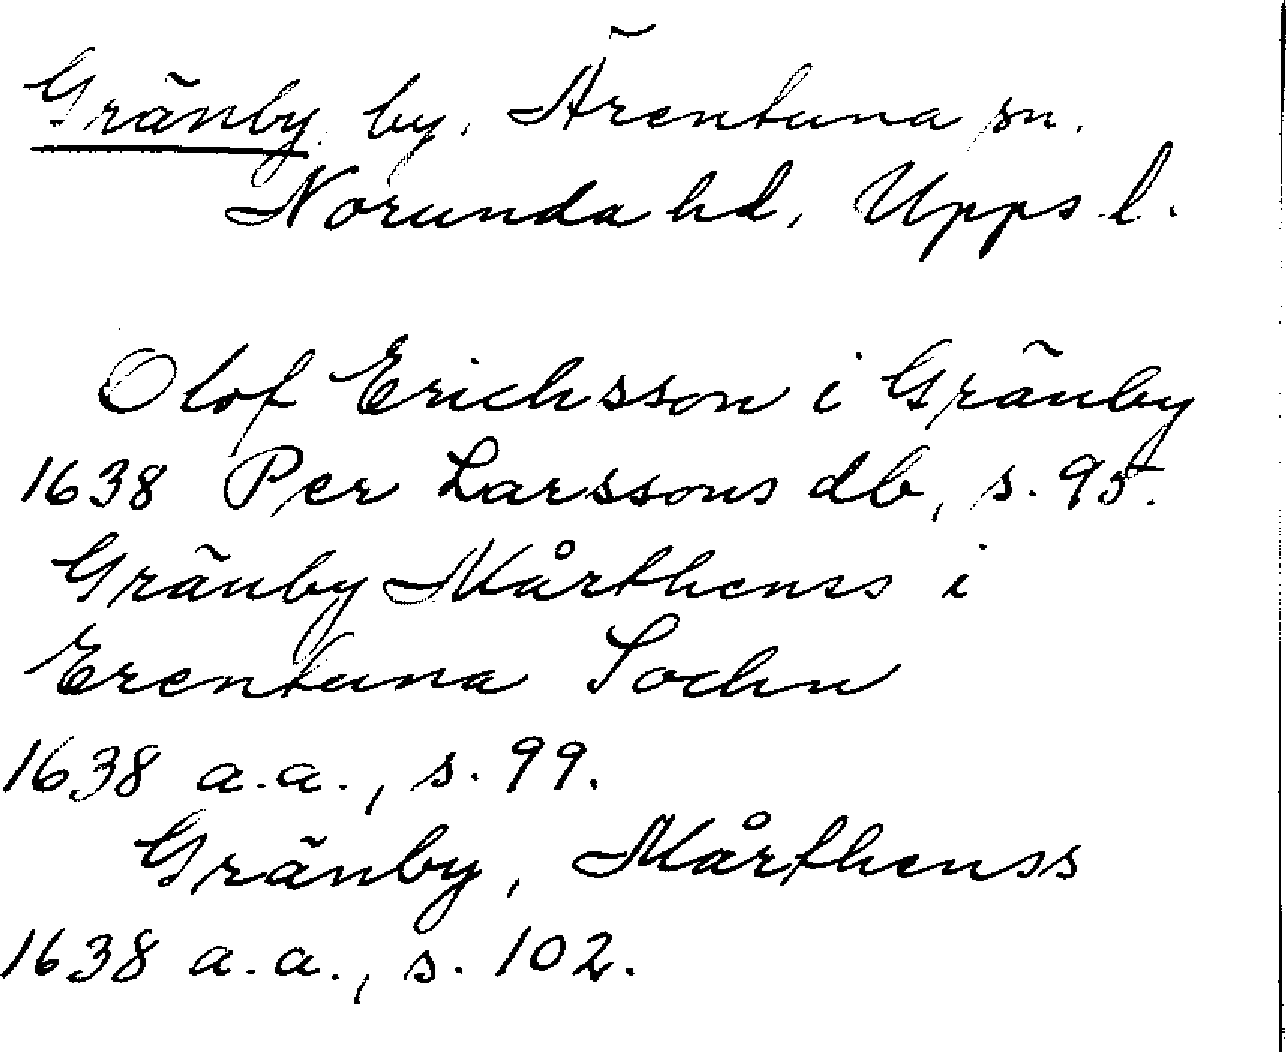 Gränby, by, Ärentuna sn.
Norunda hd, Upps. l.
Olof Erichsson i Gränby
1638 Per Larssons db, s. 95.
Gränby Mårthenss i
Erentuna Sochn
1638 a.a., s. 99.
Gränby, Mårthenss
1638 a.a., s. 102.